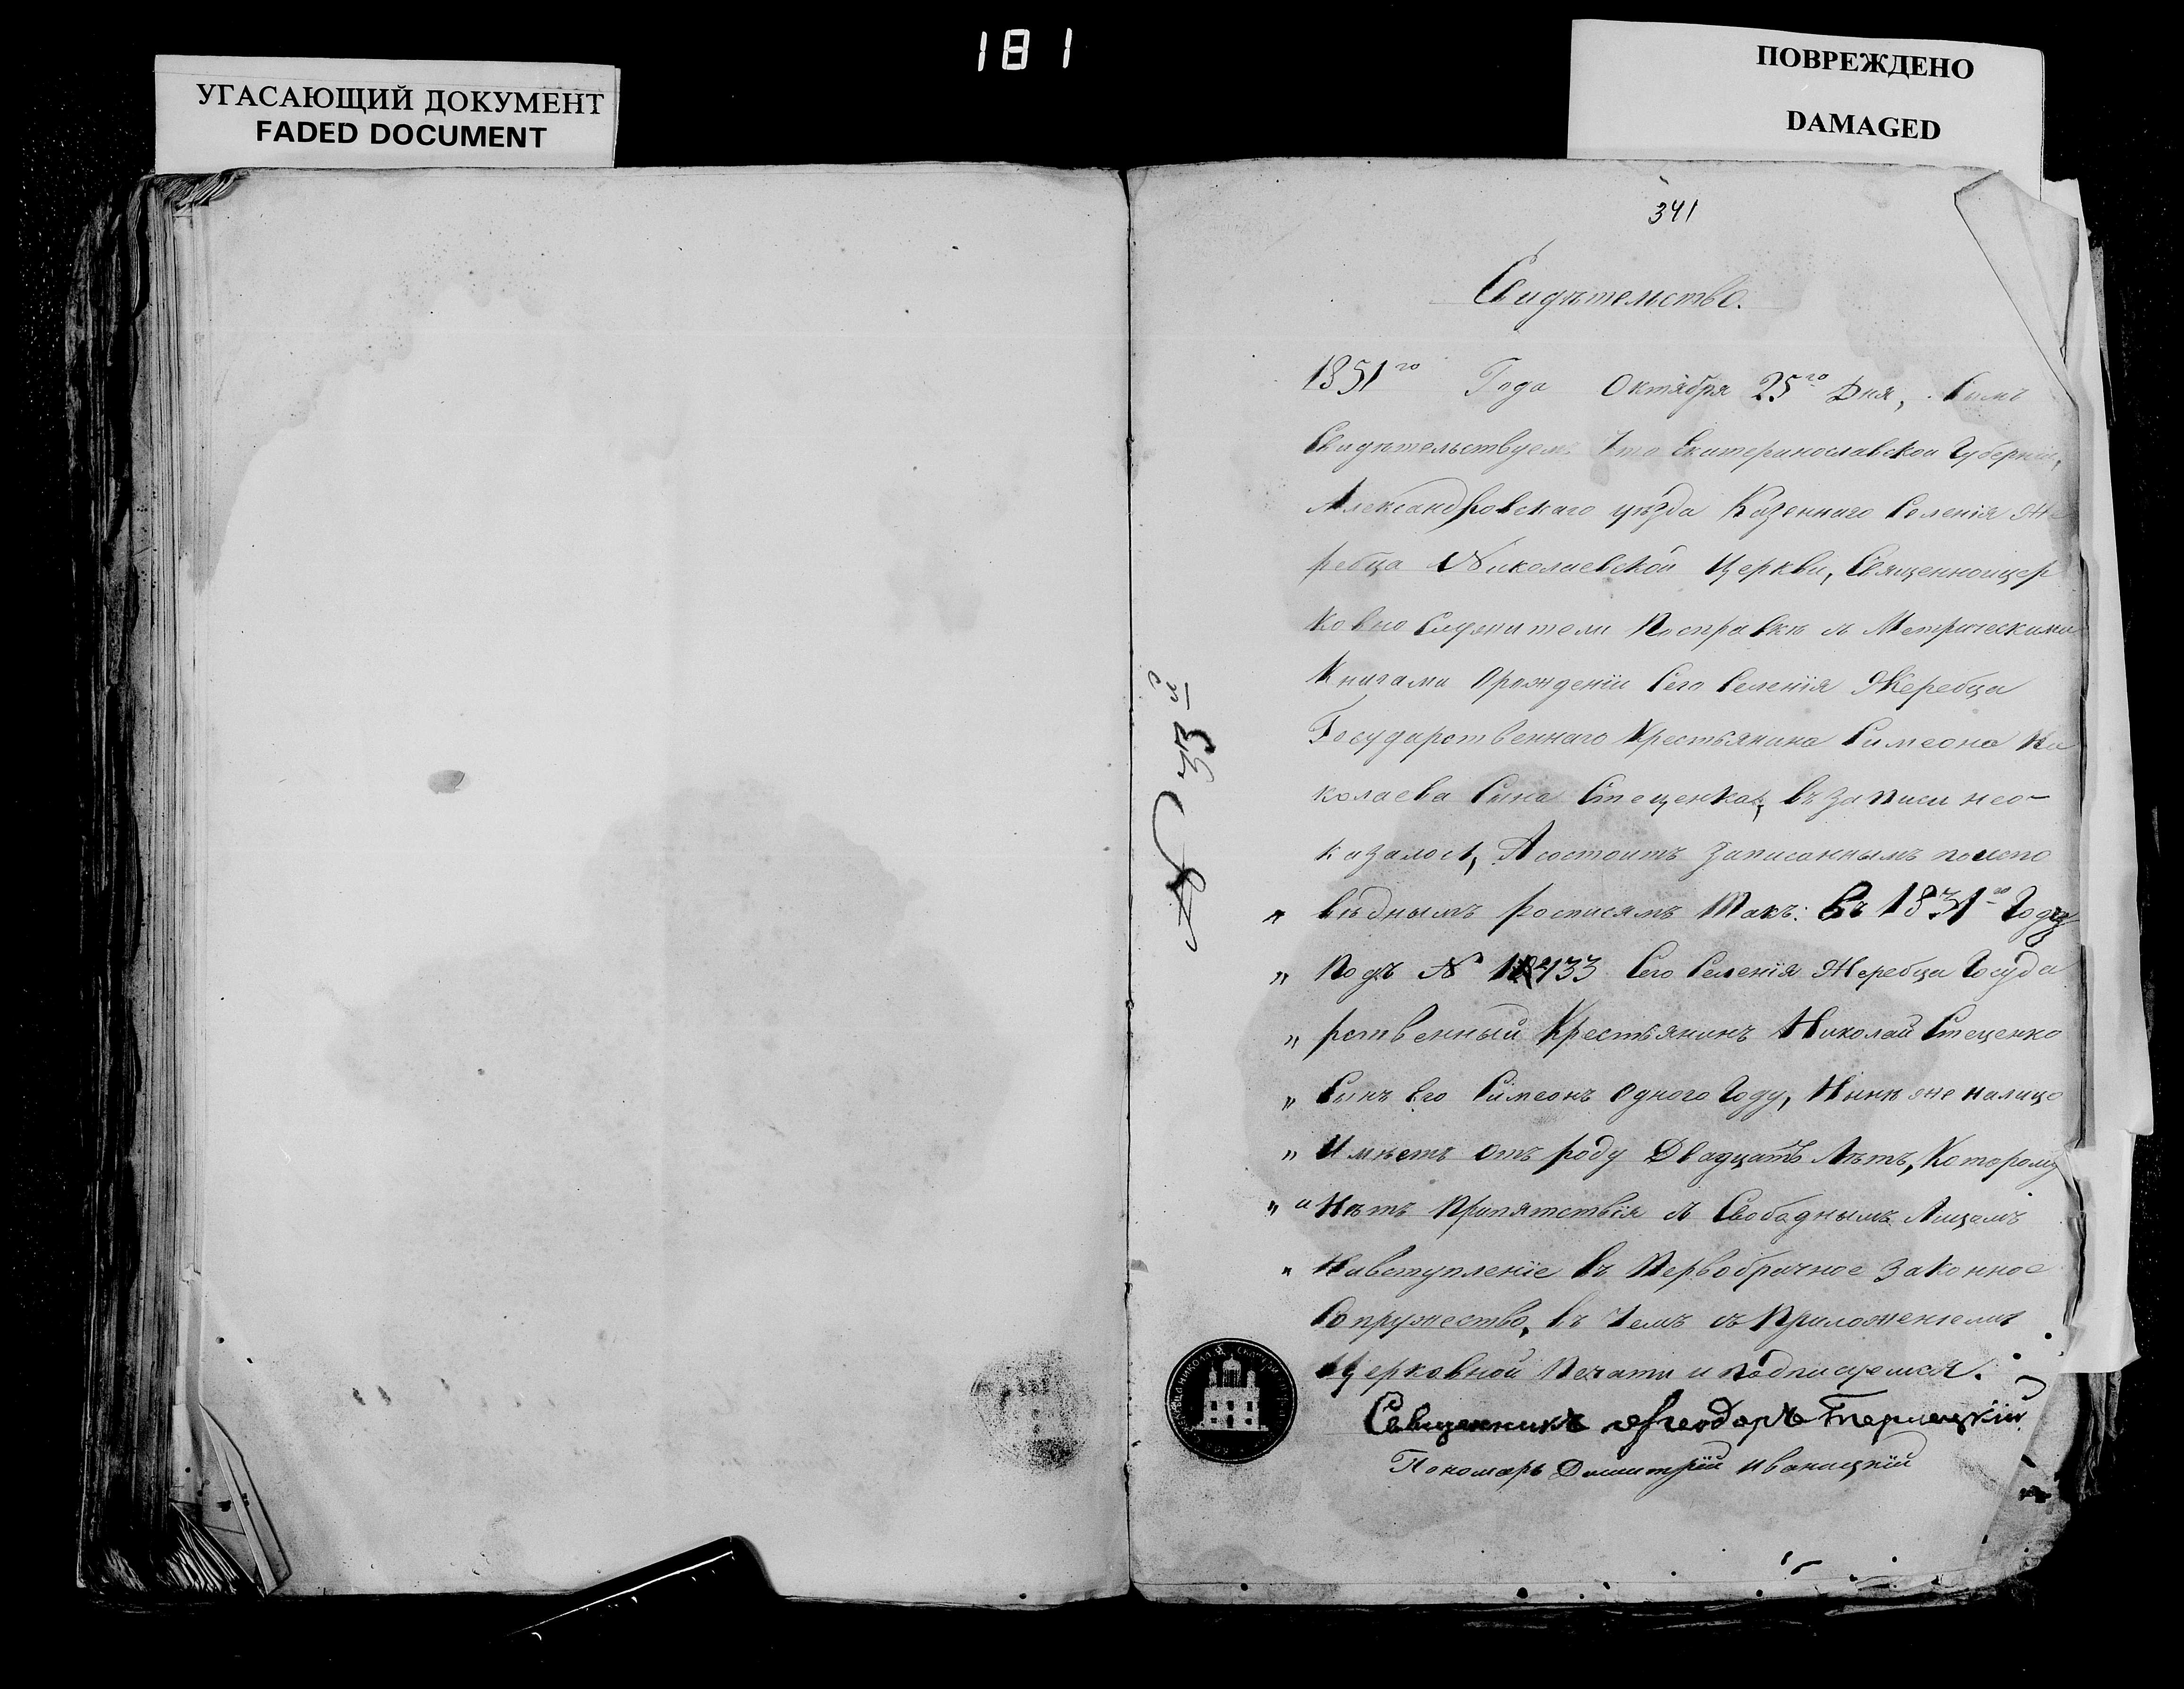 181
УГАСАЮЩИЙ ДОКУМЕНТ
FADED DOCUMENT
ПОВРЕЖДЕНО
DAMAGED
341
Свидѣтельство.
1851го Года Октября 25го Дня, Симъ
Свидѣтельствуемъ Что Екатеринославской Губерніи,
Александровскаго уѣзда Казеннаго Селенія Же
ребца Николаевской Церкви, Священноицер
ковно Служители Посправкѣ съ Метрическими
Книгами Орожденіи Сего Селенія Жеребца
Государственнаго Крестьянина Симеона Ни
колаева Сына Стеценка, въ записи нео-
казалось, А состоитъ записаннымъ поиспо
„ вѣднымъ росписямъ Такъ: Въ 1831го Году
„ Подъ № 133 Сего Селенія Жеребца Госуда
„ рственный Крестьянинъ Николай Стеценко
„ Сынъ Его Симеонъ Одного Году, Нынѣ же налицо
„ Имѣетъ Отъ роду Двадцать Лѣтъ, Которому
„ и Нѣтъ Припятствія съ Свободнымъ Лицемъ
„ Навступленіе въ Первобрачное Законное
Сопружество, въ Чемъ съ Приложеніемъ
Церковной Печати и подписуемся.
Священникъ Ѳеодоръ Терлецкій
Пономарь Димитрій Иваницкій
№ 33й